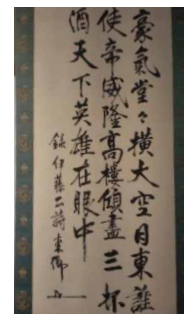 豪氣堂々横大空日東誰
使帝威隆高樓傾盡三杯
酒天下英雄在眼中
録伊藤公詩東郷